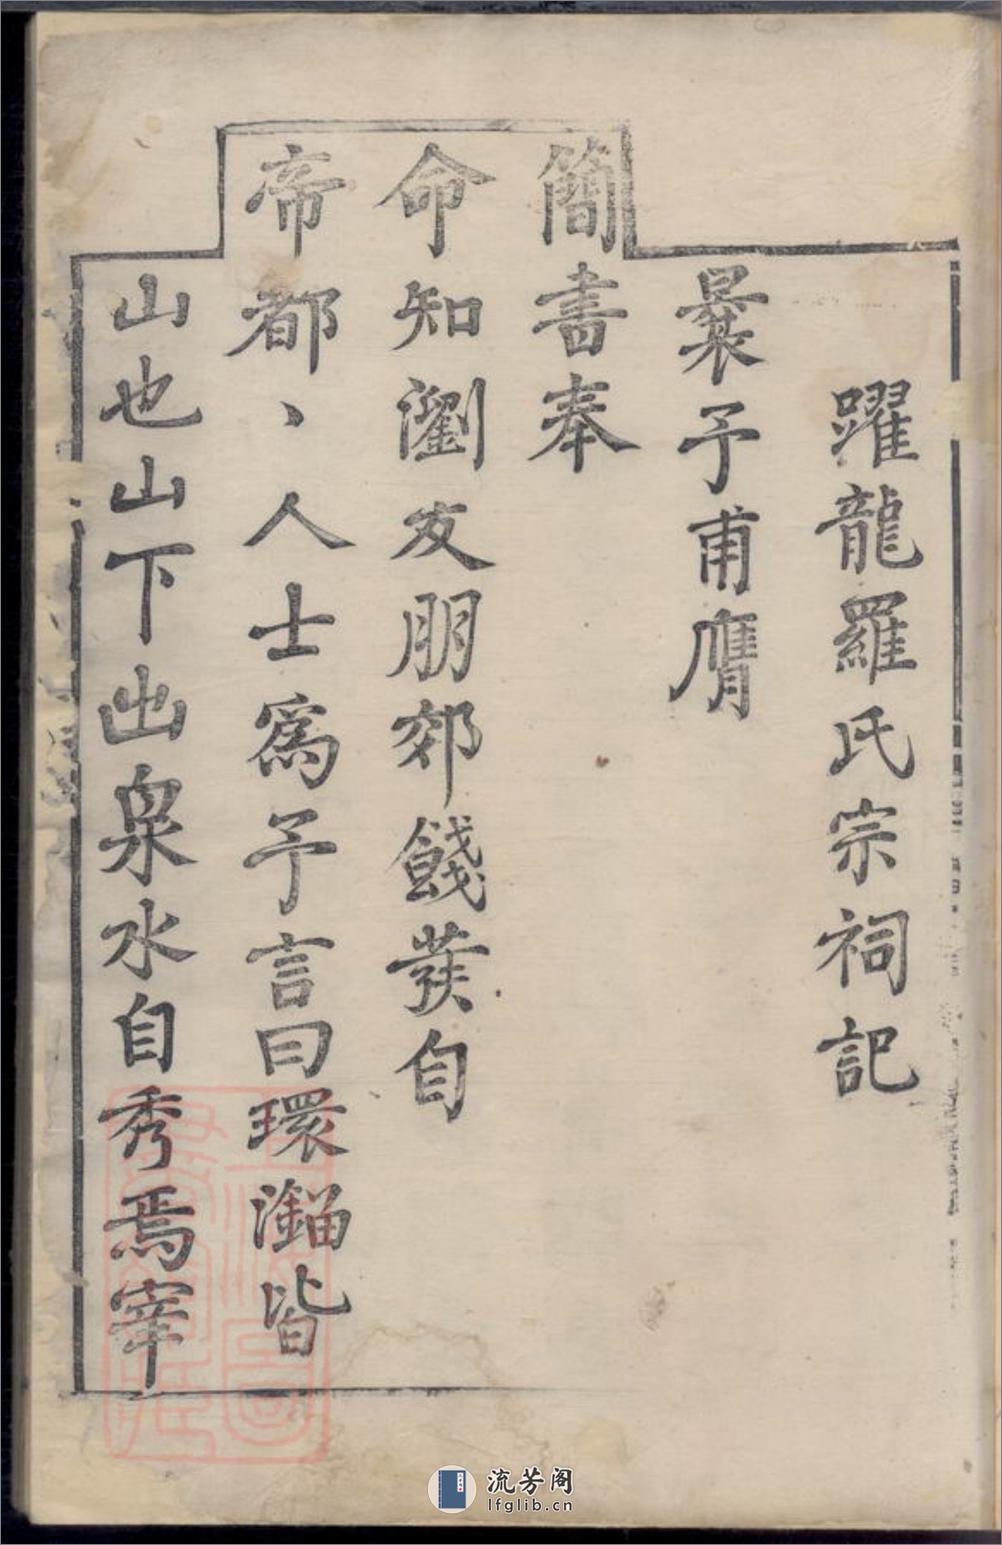 躍龍羅氏宗祠記
曩予甫膺
簡書奉
命知瀏友朋郊餞發自
帝都丶人士為予言曰環瀏皆
山也山下出泉水自秀焉宰
流芳阁
lfglib.cn